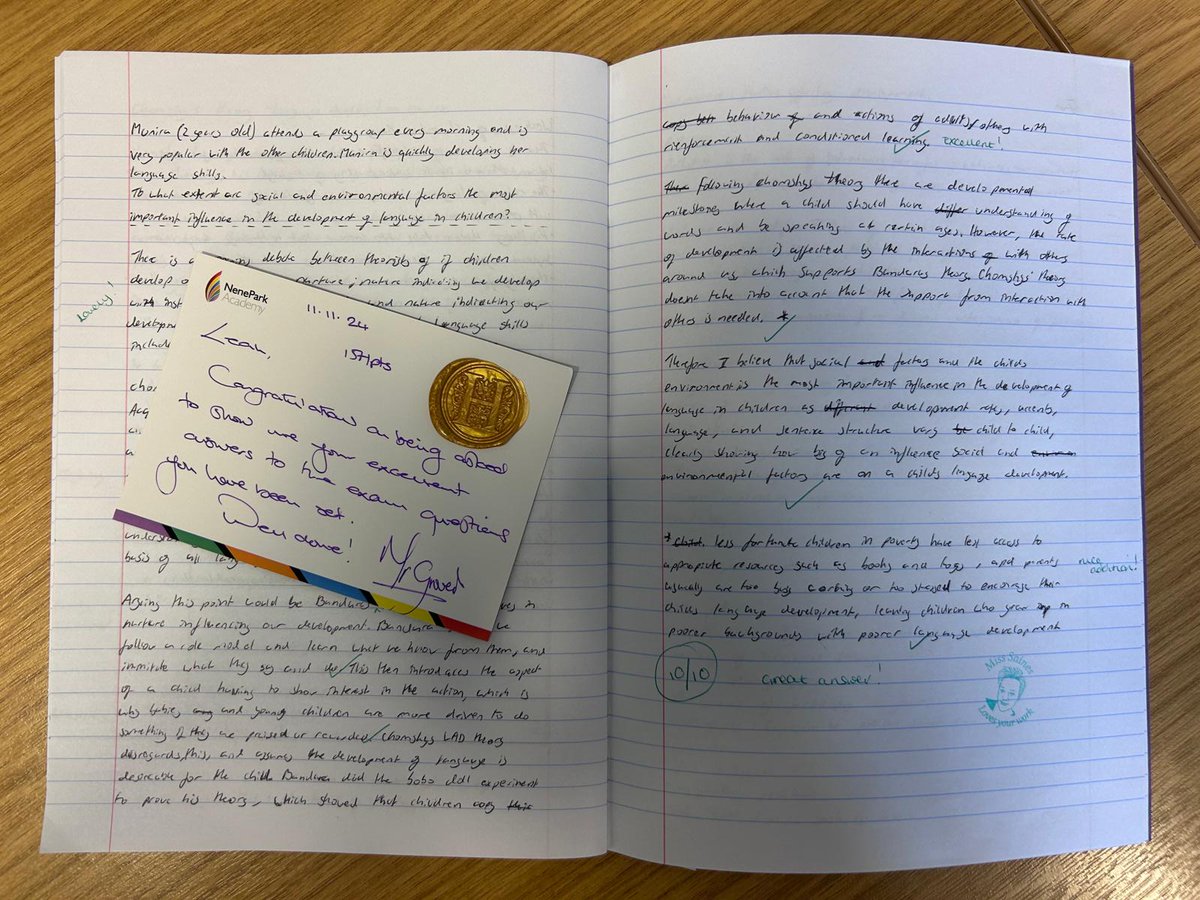 Munira (2 years old) attends a playgroup every morning and is
very popular with the other children. Munira is quickly developing her
language skills.
To what extent are social and environmental factors the most
important influence in the development of language in children?
There is a debate between theorists of if children
develop nurture, nature indicating we develop
with inst and nature indicating our
developm language skills
includ
Lovely!
cho
Acq
NenePark
Academy
11.11.24
Leah,
Congratulations on being asked
to show me your excellent
answers to the exam questions
you have been set.
Well done!
Mr Graves
underst
basis of all lang
Arguing this point would be Banduras, in
nurture influencing our development. Bandura
follow a role model and learn what we know from them, and
immitate what they say and do. This then introduces the aspect
of a child having to show interest in the action, which is
why babies and young children are more driven to do
something if they are praised or rewarded. Chomskys LAD theory
disregards this, and assumes the development of language is
desireable for the child. Bandura did the bobo doll experiment
to prove his theory, which showed that children copy their
copy beh behaviour of and actions of adults/others with
rienforcement and conditioned learning. excellent!
There Following chomskys theory there are developmental
milestones where a child should have differ understanding of
words and be speaking at certain ages. However, the rate
of development is affected by the interactions of with others
around us which supports Banduras theory. Chomskys' theory
doesnt take into account that the support from interaction with
others is needed. *
Therefore I believe that social and factors and the childs
environment is the most important influence in the development of
language in children as different development rates, accents,
language, and sentence structure vary be child to child,
clearly showing how big of an influence social and
environmental factors are on a childs language development.
* Child. less fortunate children in poverty have less access to
appropriate resources such as books and toys, and parents
usually are too busy working or too stressed to encourage their
childs language development, leaving children who grow up in
poorer backgrounds with poorer language development
nice
addition!
10/10
Great answer!
Miss Shines
Loves your work